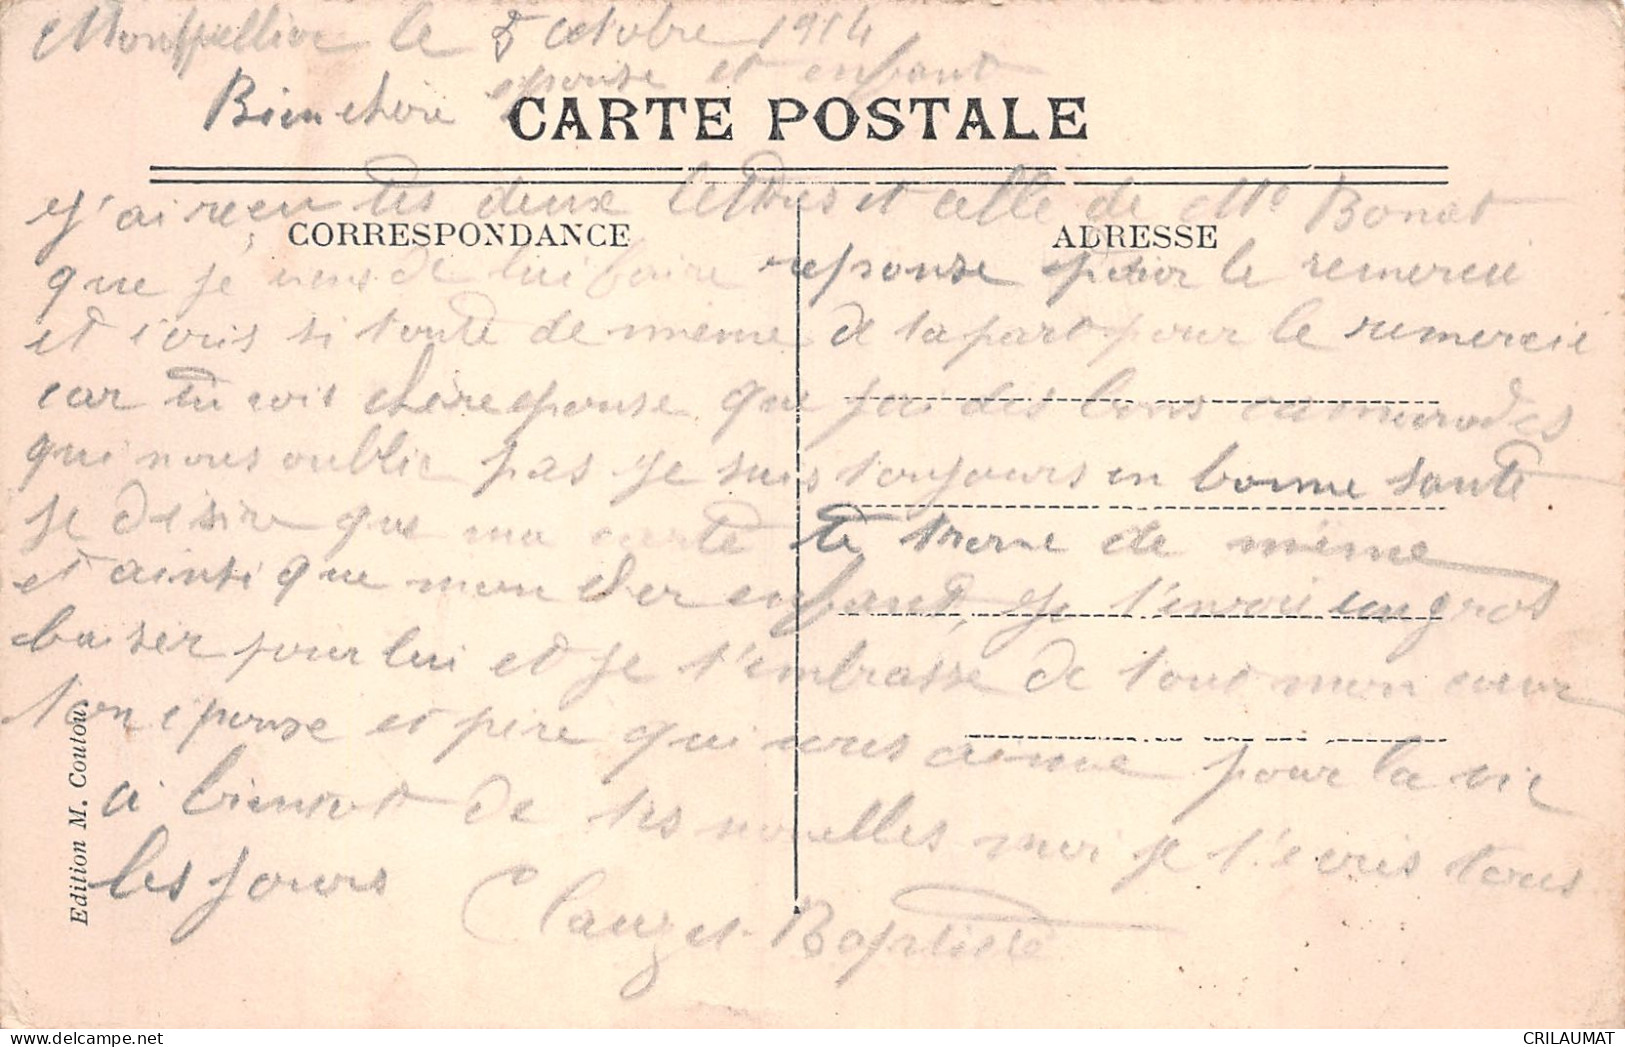 Montpellier le 8 octobre 1914
Bien chere epouse et enfant
CARTE POSTALE
J'ai reçu tes deux lettres et celle de Mr Bonat
CORRESPONDANCE
ADRESSE
que je viens de lui faire reponse pour le remercie
et ecris si toute de meme de ta part pour le remercié
car tu vois chere epouse que j'ai des bons camarades
qui nous oublie pas je suis toujours en bonne santé
je desire que ma carte te trouve de même
et ainsi que mon cher enfant, je t'envoie un gros
baiser pour lui et je t'embrasse de tout mon cœur
ton epouse et père qui vous aime pour la vie
a bientot de tes nouvelles moi je t'ecris tous
les jours
Clauzet Baptiste
Edition M. Coutou.
CRILAUMAT